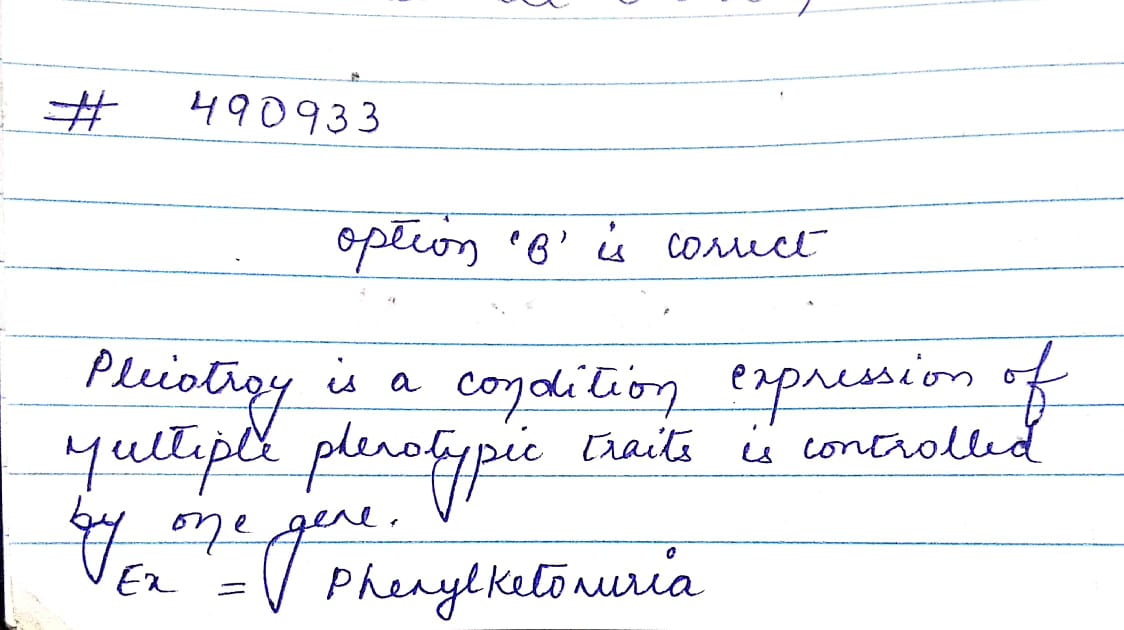 # 490933
option 'B' is correct
Pleiotroy is a condition expression of
Multiple phenotypic traits is controlled
by one gene.
Ex = Phenylketonuria